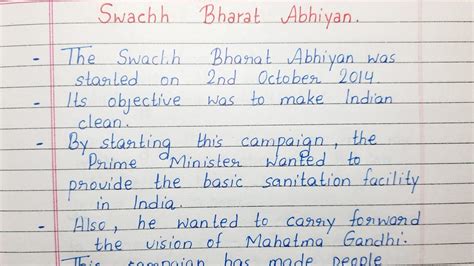 Swachh Bharat Abhiyan.
- The Swach Bharat Abhiyan was
started on 2nd October 2014.
- Its objective was to make Indian
clean.
- By starting this campaign, the
Prime Minister wanted to
provide the basic sanitation facility
in India.
- Also, he wanted to carry forward
the vision of Mahatma Gandhi.
This campaign has made people